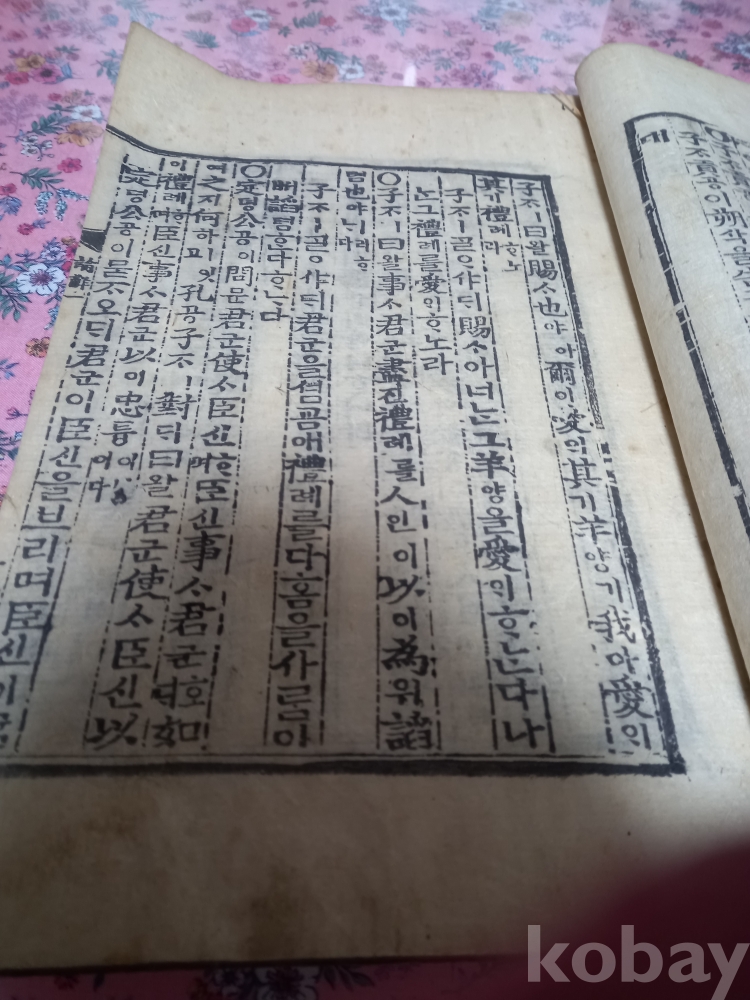 子ᄌᆞㅣ曰왈賜ᄉᆞ也야아爾이愛ᄋᆡ其기羊양가我아愛ᄋᆡ
其기禮례ᄒᆞ노라
子ᄌᆞㅣᄀᆞᆯᄋᆞ샤ᄃᆡ賜ᄉᆞ아너ᄂᆞᆫ그羊양을愛ᄋᆡᄒᆞᄂᆞᆫ다나
ᄂᆞᆫ그禮례를愛ᄋᆡᄒᆞ노라
○子ᄌᆞㅣ曰왈事ᄉᆞ君군盡진禮례를人인이以이爲위諂
텸也야ㅣ라ᄒᆞᄂᆞ다
子ᄌᆞㅣᄀᆞᆯᄋᆞ샤ᄃᆡ君군을셤굠애禮례를다홈을사ᄅᆞᆷ이
ᄡᅥ諂텸ᄒᆞᆫ다ᄒᆞᄂᆞ다
○定뎡公공이問문君군使ᄉᆞ臣신ᄒᆞ며臣신事ᄉᆞ君군호ᄃᆡ如
여之지何하ㅣ고잇孔공子ᄌᆞㅣ對ᄃᆡ曰왈君군使ᄉᆞ臣신以
이禮례ᄒᆞ며臣신事ᄉᆞ君군以이忠튱이니이다
定뎡公공이묻ᄌᆞ오ᄃᆡ君군이臣신을브리며臣신이
kobay